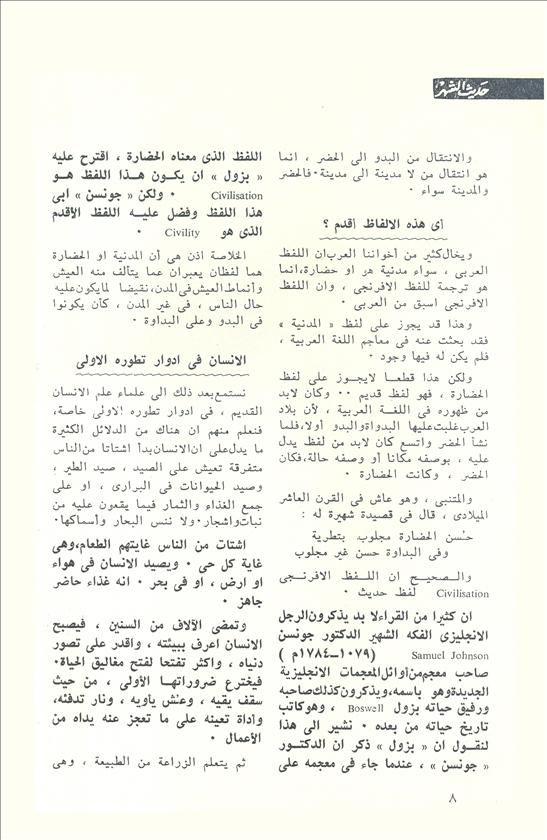 حديث الشهر
والانتقال من البدو الى الحضر ، انما
هو انتقال من لا مدينة الى مدينة . فالحضر
والمدينة سواء .
أى هذه الالفاظ أقدم ؟
ويخال كثير من أخواننا العرب ان اللفظ
العربى ، سواء مدنية هو او حضارة ، انما
هو ترجمة للفظ الافرنجى ، وان اللفظ
الافرنجى اسبق من العربى .
وهذا قد يجوز على لفظ « المدنية »
فقد بحثت عنه فى معاجم اللغة العربية ،
فلم يكن له فيها وجود .
ولكن هذا قطعـا لايجوز على لفظ
الحضارة ، فهو لفظ قديم .. وكان لابد
من ظهوره فى اللغة العربية ، لأن بلاد
العرب غلبت عليها البداوة والبدو أولا ، فلما
نشأ الحضر واتسع كان لابد من لفظ يدل
عليه ، بوصفه مكانا أو وصفه حالة ، فكان
الحضر ، وكانت الحضارة .
والمتنبى ، وهو عاش فى القرن العاشر
الميلادى ، قال فى قصيدة شهيرة له :
حُسن الحضارة مجلوب بتطرية
وفى البداوة حسن غير مجلوب
والـصحيـح ان اللـفظ الافرنـجى
Civilisation لفظ حديث .
ان كثيرا من القراء لا بد يذكرون الرجل
الانجليزى الفكه الشهير الدكتور جونسن
Samuel Johnson (١٠٧٩ـ١٧٨٤م )
صاحب معجم من أوائل المعجمات الانجليزية
الجديدة وهو باسمه ، ويذكرون كذلك صاحبه
ورفيق حياته بزول Boswell ، وهو كاتب
تاريخ حياته من بعده . نشير الى هذا
لنقـول ان « بزول » ذكر ان الدكتـور
« جونسن » ، عندما جاء فى معجمه على
اللفظ الذى معناه الحضارة ، اقترح عليه
« بزول » ان يكـون هـذا اللفظ هـو
Civilisation . ولكن « جونسن » ابى
هذا اللفظ وفضل عليـه اللفظ الأقدم
الذى هو Civility .
الخلاصة اذن هى أن المدنية او الحضارة
هما لفظان يعبران عما يتألف منه العيش
وأنماط العيش فى المدن ، نقيضا لما يكون عليه
حال الناس ، فى غير المدن ، كأن يكونوا
فى البدو وعلى البداوة .
الانسان فى ادوار تطوره الاولى
نستمع بعد ذلك الى علماء علم الانسان
القديم ، فى ادوار تطوره الاولى خاصة ،
فنعلم منهم ان هناك من الدلائل الكثيرة
ما يدل على ان الانسان بدأ اشتاتا من الناس
متفرقة تعيش على الصيد ، صيد الطير ،
وصيد الحيوانات فى البرارى ، او على
جمع الغذاء والثمار فيما يقعون عليه من
نبات واشجار . ولا ننس البحار وأسماكها .
اشتات من الناس غايتهم الطعام ، وهى
غاية كل حى . ويصيد الانسان فى هواء
او ارض ، او فى بحر . انه غذاء حاضر
جاهز .
وتمضى الآلاف من السنين ، فيصبح
الانسان اعرف ببيئته ، واقدر على تصور
دنياه ، واكثر تفتحا لفتح مغاليق الحياة .
فيخترع ضروراتهـا الأولى ، من حيث
سقف يقيه ، وعش يأويه ، ونار تدفئه ،
وأداة تعينه على ما تعجز عنه يداه من
الأعمال .
ثم يتعلم الزراعة من الطبيعة ، وهى
٨